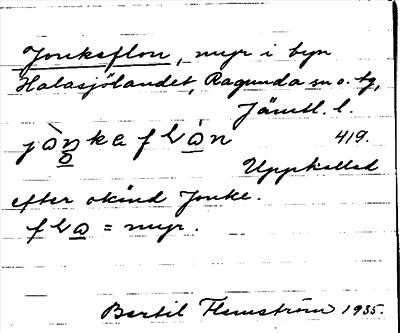 Jonkaflon, myr i byn
Halasjölandet, Ragunda sn o. tg,
Jämtl. l.
jòŋkaflòn 419.
Uppkallad
efter okänd Jonke.
flo = myr.
Bertil Flemström 1935.